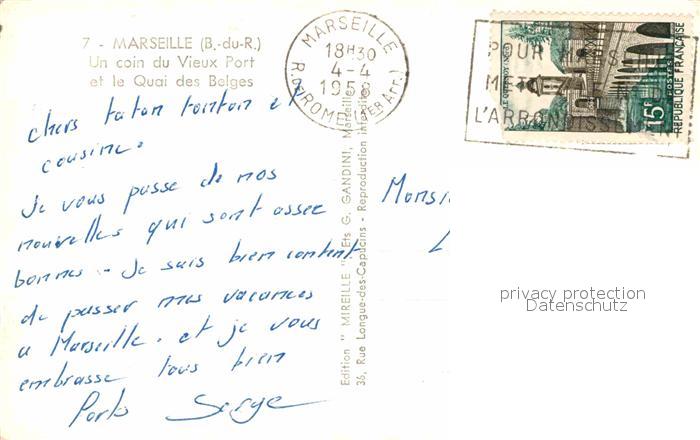 7 - MARSEILLE (B.-du-R.)
Un coin du Vieux Port
et le Quai des Belges
chers taton tonton et
cousine.
Je vous passe de nos
nouvelles qui sont assez
bonnes - Je suis bien content
de passer mes vacances
a Marseille. et je vous
embrasse tous bien
Serge
Edition " MIREILLE " Ets G. GANDINI, Marseille
36, Rue Longue-des-Capucins - Reproduction interdite
MARSEILLE
18H30
4-4
1958
R. DE ROME (1ER Arr.)
POUR
L'ARRON
15F
POSTES
REPUBLIQUE FRANÇAISE
LE QUESNOY
Monsi
privacy protection
Datenschutz